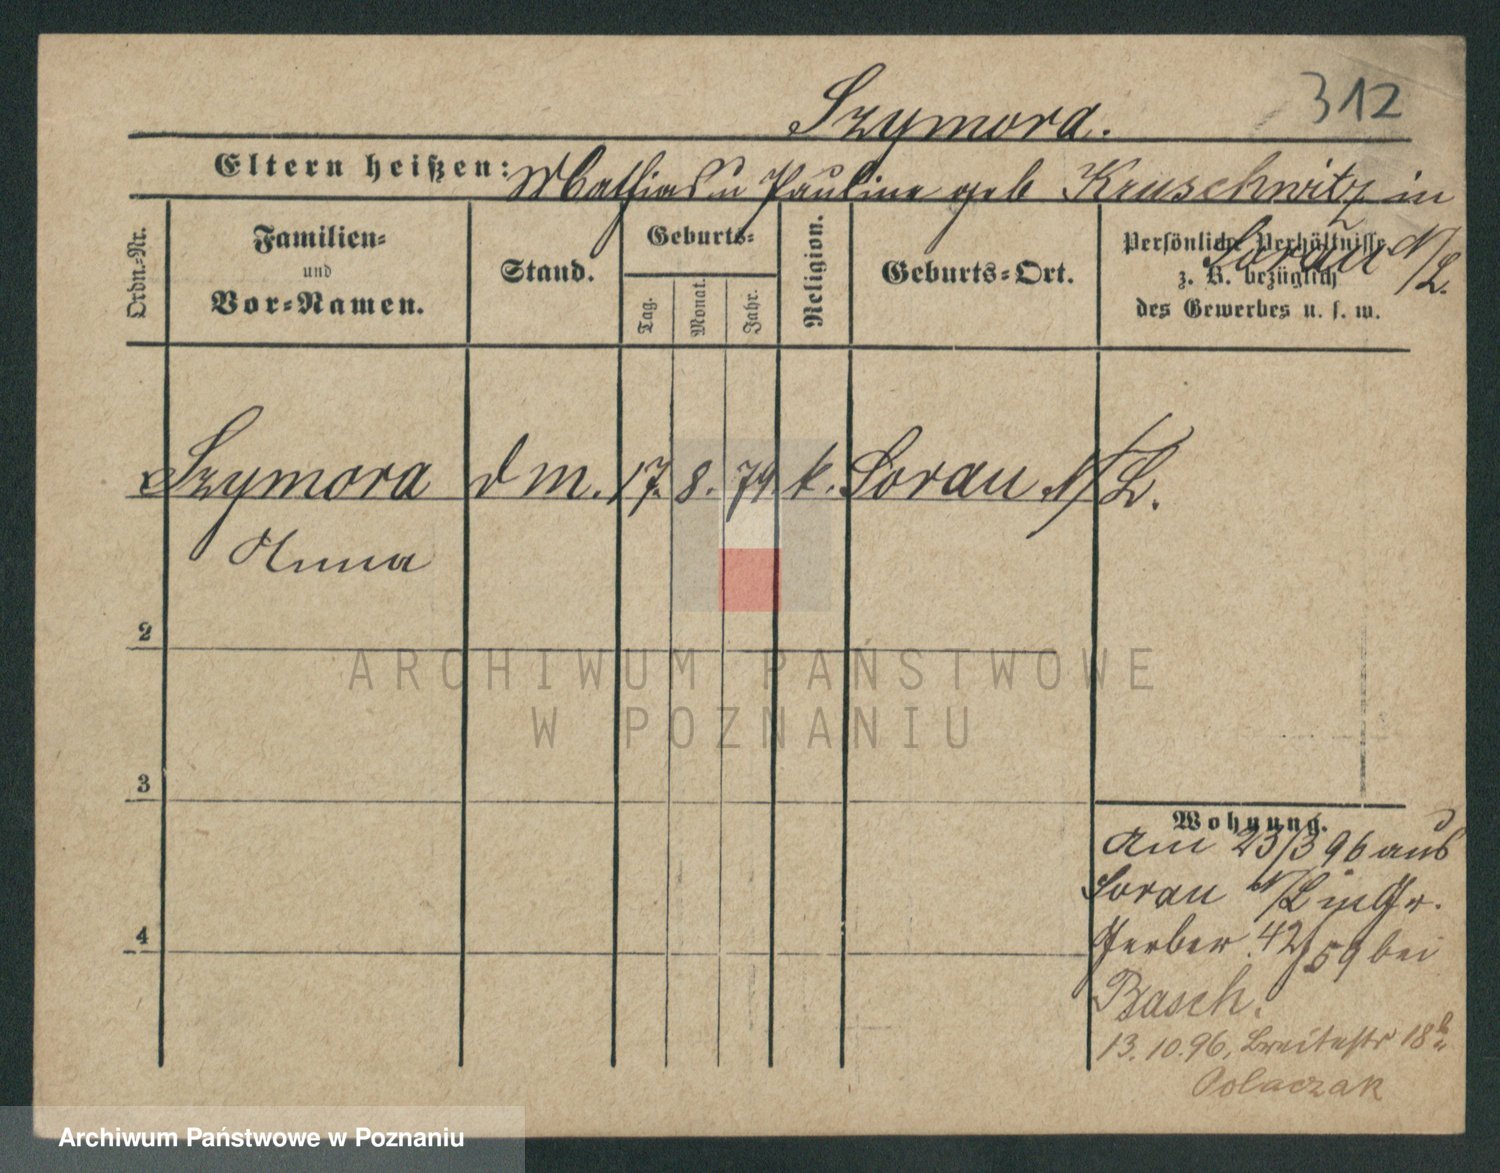 312
Szymora.
Eltern heißen: Mathias u Pauline geb Kruschwitz in
Sorau N/L.
Ordn.-Nr.
Familien-
und
Vor-Namen.
Stand.
Geburts-
Tag.
Monat.
Jahr.
Religion.
Geburts-Ort.
Persönliche Verhältnisse
z. B. bezüglich
des Gewerbes u. s. w.
Szymora d m. 17. 8. 79. k. Sorau N/L.
Anna
2
3
4
Wohnung.
Am 23/3 96 aus
Sorau N/L in Gr.
Gerber. 42/59 bei
Basch.
13. 10. 96, Breitestr 18b
Polaczak
ARCHIWUM PAŃSTWOWE
W POZNANIU
Archiwum Państwowe w Poznaniu